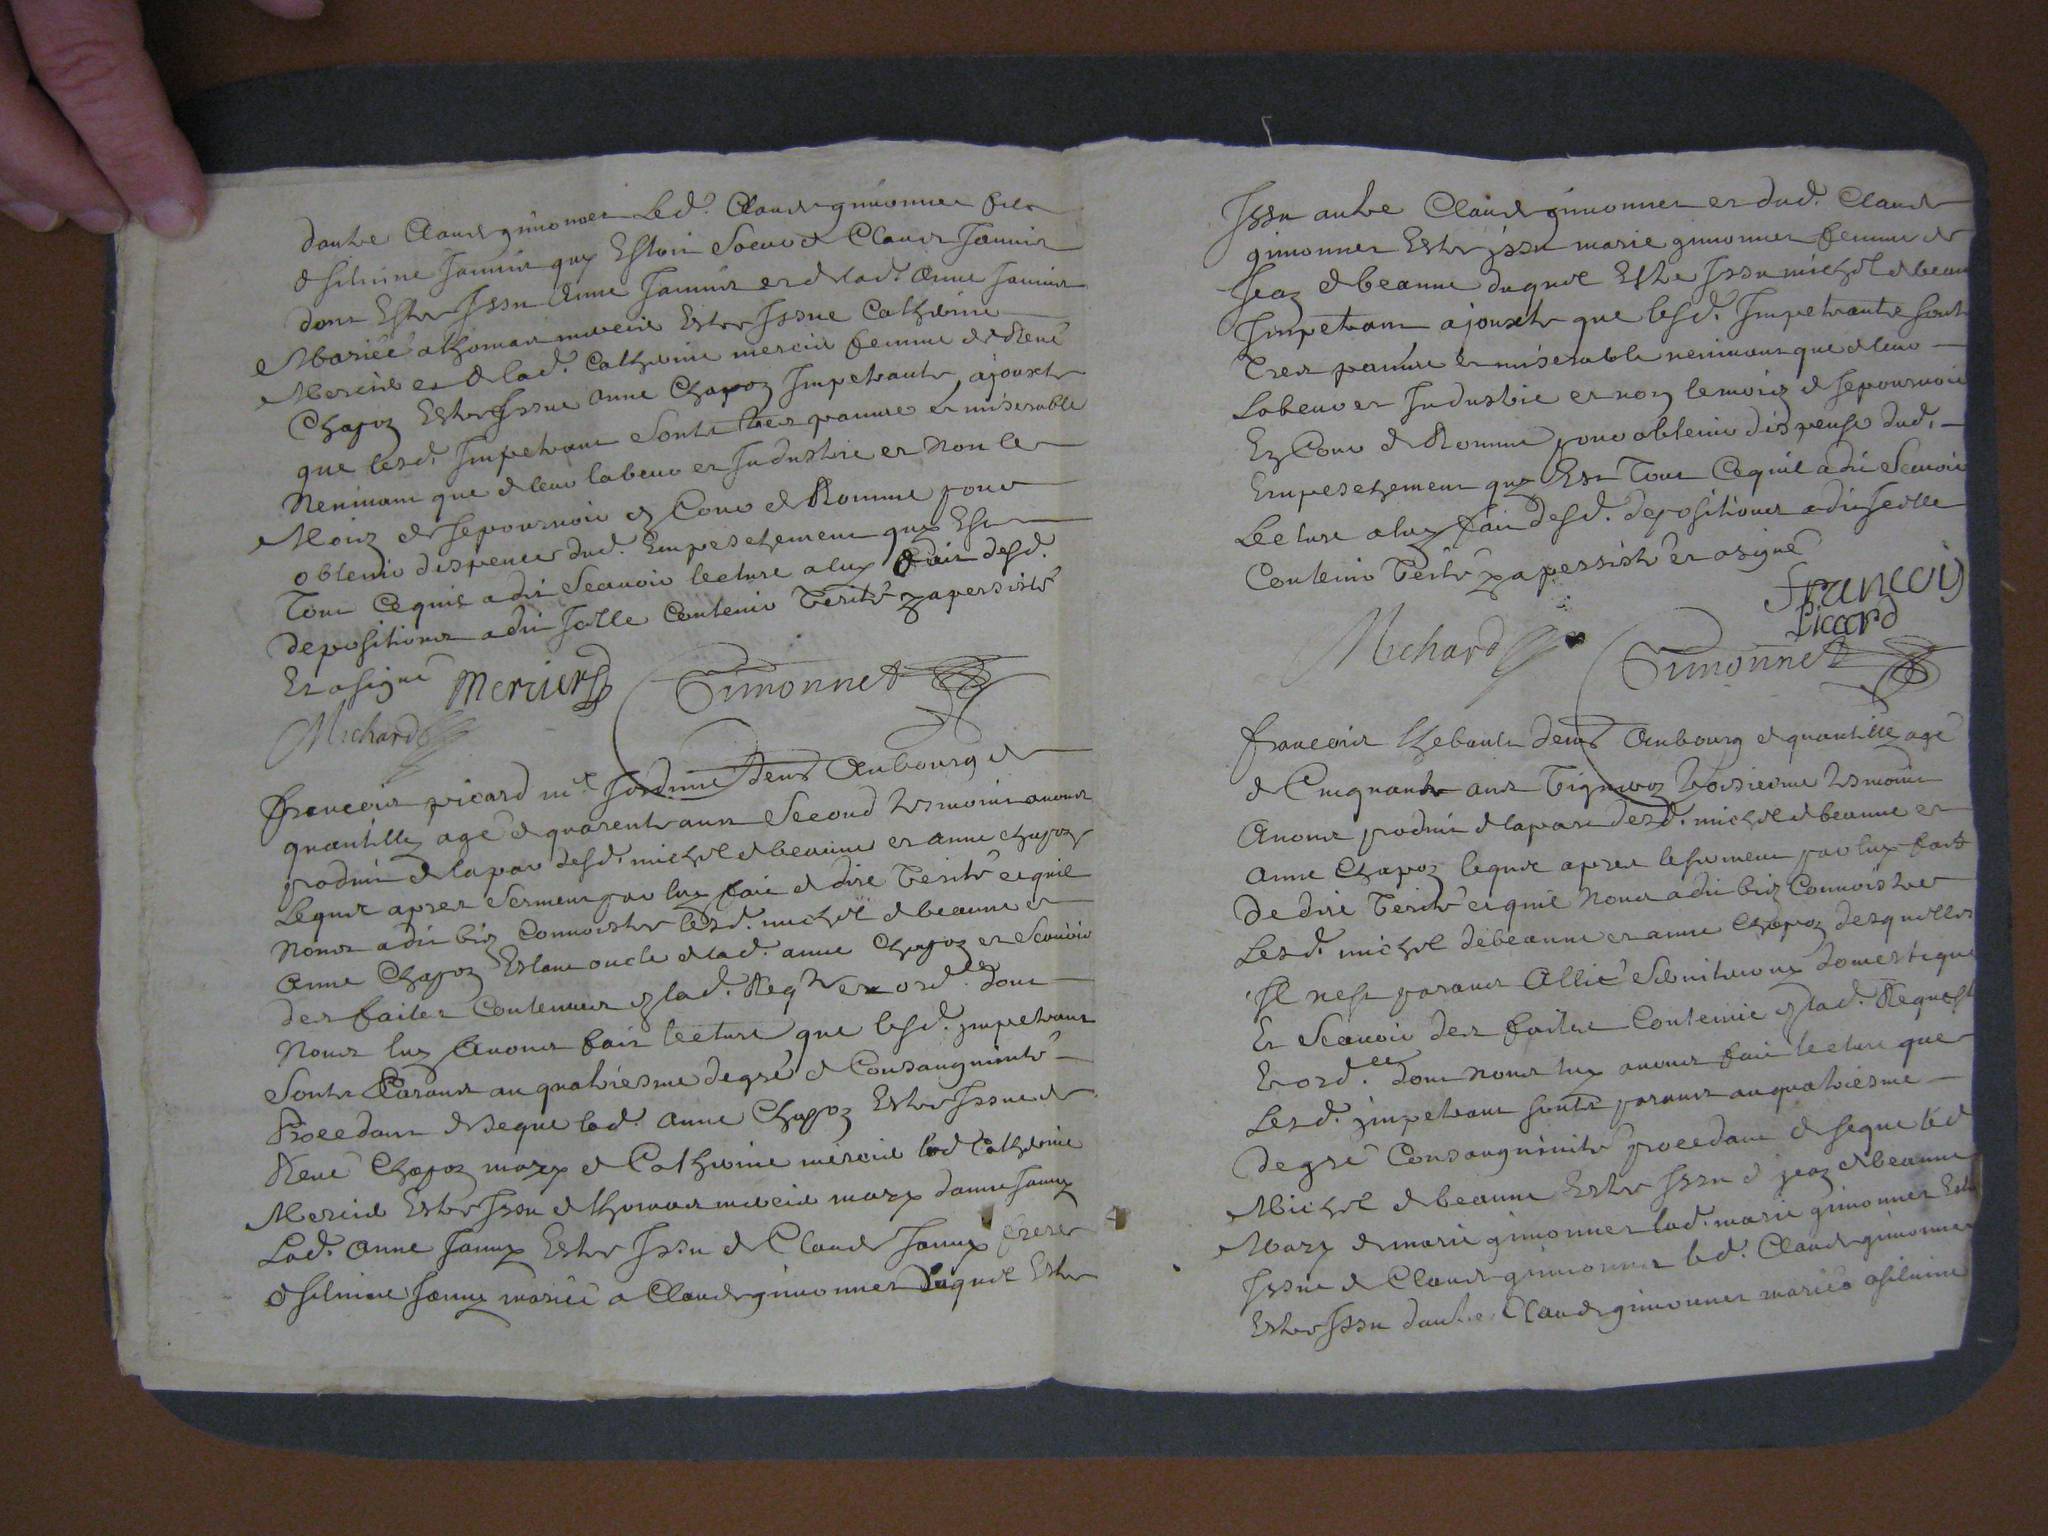 dautre Claude gimonnet Led. Claude gimonnet filz
d silvine Jamin quy Estoit Soeur de Claude Jamin
dont Estre Issu Anne Jamin et de lad. Anne Jamin
Mariée a thomas mercier Estre Issue Catherine
Mercier et de lad. Catherine mercier femme de René
Chapoz Estre Issue Anne Chapoz Impetrante, ajouxte
que lesd. Impetrant Sontt tres pauvre et miserable
Nenivant que de leur labeur et Industrie et Non le
Moiz de se pourvoir ez Cour de Romme pour
obtenir dispence dud. Empeschement quy Est
Tout Cequil a dit Scavoir lecture a luy fait desd.
depositions a dit Jcelle Contenir Verité y a persisté
Et a signé Mercier Gimonnet
Michard
francois picard md Jardinie demt Aubourg de
quantilly agé de quarente ans Second tesmoin avons
produit de la par desd. michel debeaune et anne chapoz
Lequel apres Serment par luy fait de dire Verité ce quil
Nous a dit biz Connoistre lesd. michel debeaune et
Anne Chapoz Estant oncle de lad. anne Chapoz et Scavoir
des faites Contenues ez lad. Reqte et ordce. dont
Nous luy Avons fait lecture que lesd. impetrant
Sontt Parans au quatriesme degré de Consanguinité
Procedant de ce que lad. anne Chapoz Estre Issue de
René Chapoz mary de Catherine mercier lad Catherine
Mercier Estre Issu de thomas mercier mary danne Jamy
Lad. Anne Jamy Estre Issu de Claude Jamy frere
d silvine Jamy mariée a Claude gimonnet Duquel Estre
Issu autre Claude gimonnet et dud. Claude
gimonnet Estre issu marie gimonnet femme de
Jeaz debeaune duquel Estre Issu michel debeaune
Impetrant ajouxte que lesd. Impetrante sontt
Tres pauvre & miserable nenivant que de leur
Labeur et Industrie et noz le moiz de se pourvoir
Ez Cour de Romme pour obtenir dispense dud.
Empeschement quy Est Tout Cequil a dit Scavoir
Lecture a luy fait desd. depositions a dit Icelle
Contenir Verité y a persisté et a signé
francois
Piccard
Michard Gimonnet
francois thebault demt Aubourg de quantille agé
de Cinquante ans Vigneroz troisiesme tesmoin
Avons produit de la part desd. michel debeaune et
Anne Chapoz lequel apres le serment par luy fait
De dire Verité ce quil Nous a dit biz Connoistre
Lesd. michel debeaune et anne Chapoz desquelles
Il nest parans Allié Serviteur ny domestique
Et Scavoir des faites Contenue ez lad. Requeste
Et ordce. dont nous luy avons fait lecture que
Lesd. impetrant sontt parans au quatriesme
degré Consanguinité procedant de se que led
Michel debeaune Estre Issu de jeaz debeaune
Mary de marie gimonnet lad. marie gimonnet Estre
Issue de Claude gimonnet led. Claude gimonnet
Estre Issu dautre Claude gimonnet mariée a silvine